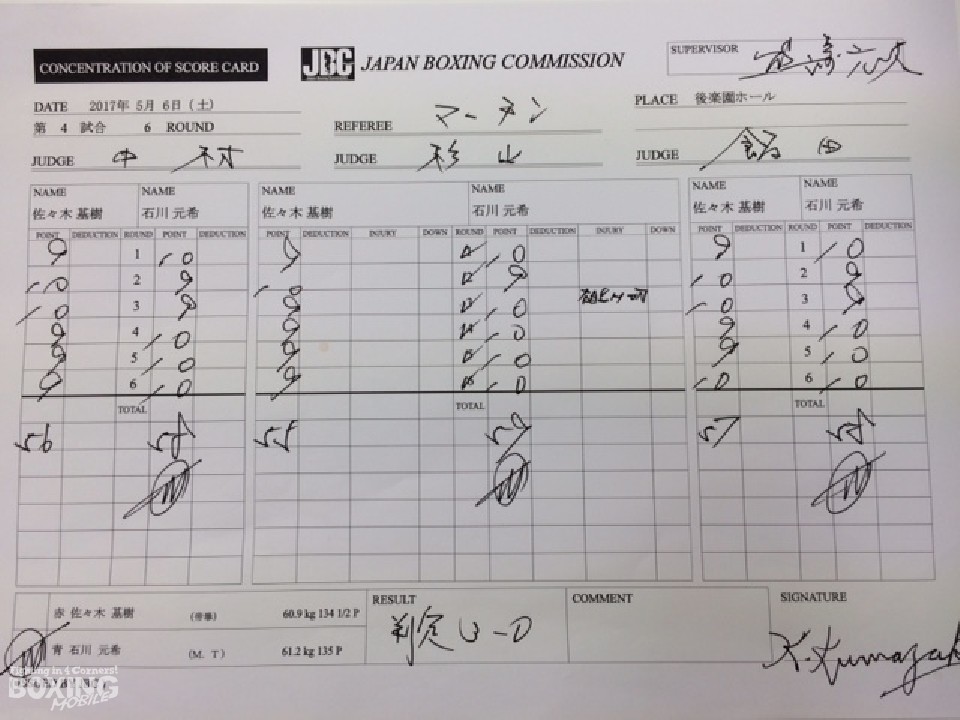 CONCENTRATION OF SCORE CARD
JBC JAPAN BOXING COMMISSION
SUPERVISOR
DATE 2017年 5月 6日(土)
PLACE 後楽園ホール
第 4 試合 6 ROUND
REFEREE マーチン
JUDGE 中村
JUDGE 杉山
JUDGE 飯田
NAME NAME NAME NAME NAME NAME
佐々木 基樹 石川 元希 佐々木 基樹 石川 元希 佐々木 基樹 石川 元希
POINT DEDUCTION ROUND POINT DEDUCTION POINT DEDUCTION INJURY DOWN ROUND POINT DEDUCTION INJURY DOWN POINT DEDUCTION ROUND POINT DEDUCTION
9 1 10 9 10 9 1 10
10 2 9 10 9 10 2 9
10 3 9 9 10 10 3 9
9 4 10 9 10 9 4 10
9 5 10 9 10 9 5 10
9 6 10 9 10 10 6 10
TOTAL TOTAL TOTAL
56 58 55 59 57 58
赤 佐々木 基樹 (帝拳) 60.9 kg 134 1/2 P
青 石川 元希 (M. T) 61.2 kg 135 P
RESULT
判定 3-0
COMMENT
SIGNATURE
K. Kumazaki
Fighting in 4 Corners!
BOXING
MOBILE